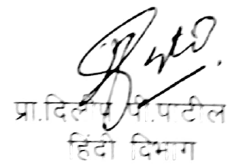 प्रा.दिलीप पी.पाटील
हिंदी विभाग